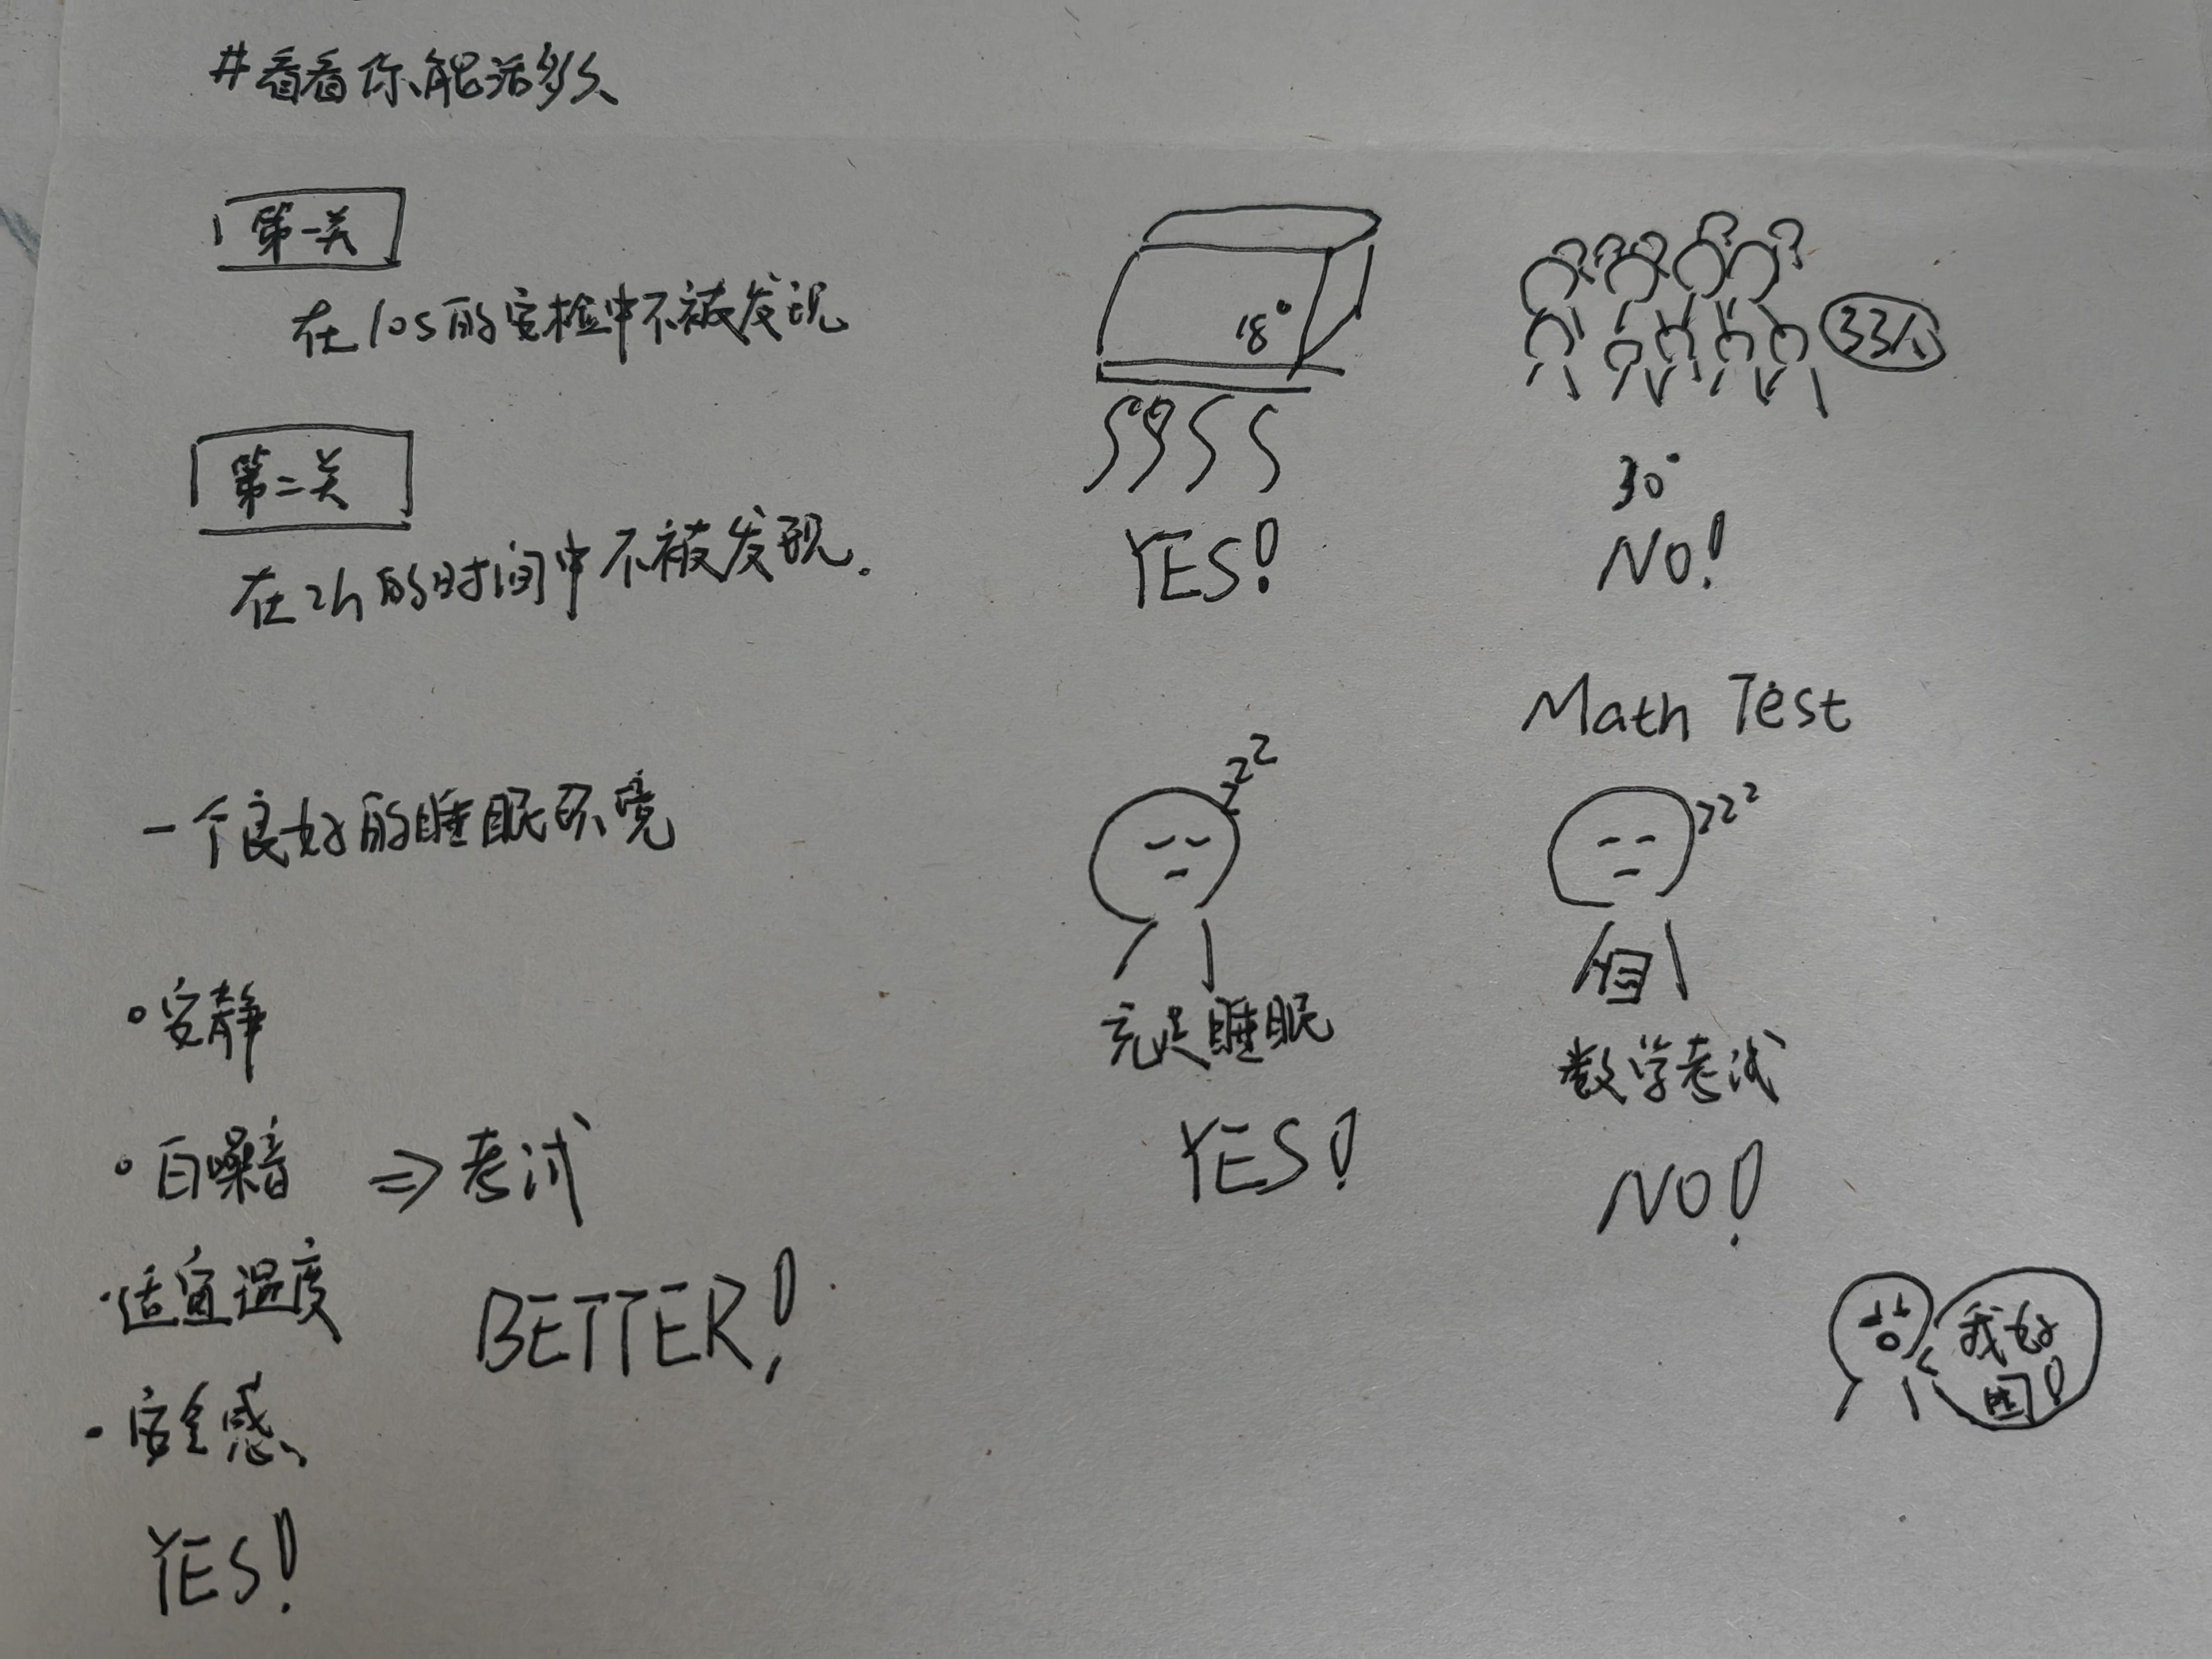 #看看你能活多久
第一关
在10s的安检中不被发现
第二关
在2h的时间中不被发现。
一个良好的睡眠环境
·安静
·白噪音 ⇒ 考试
·适宜温度
BETTER!
·安全感
YES!
18°
YES!
33人
30°
NO!
zzz
充足睡眠
YES!
Math Test
zzz
数学考试
NO!
我好
困!